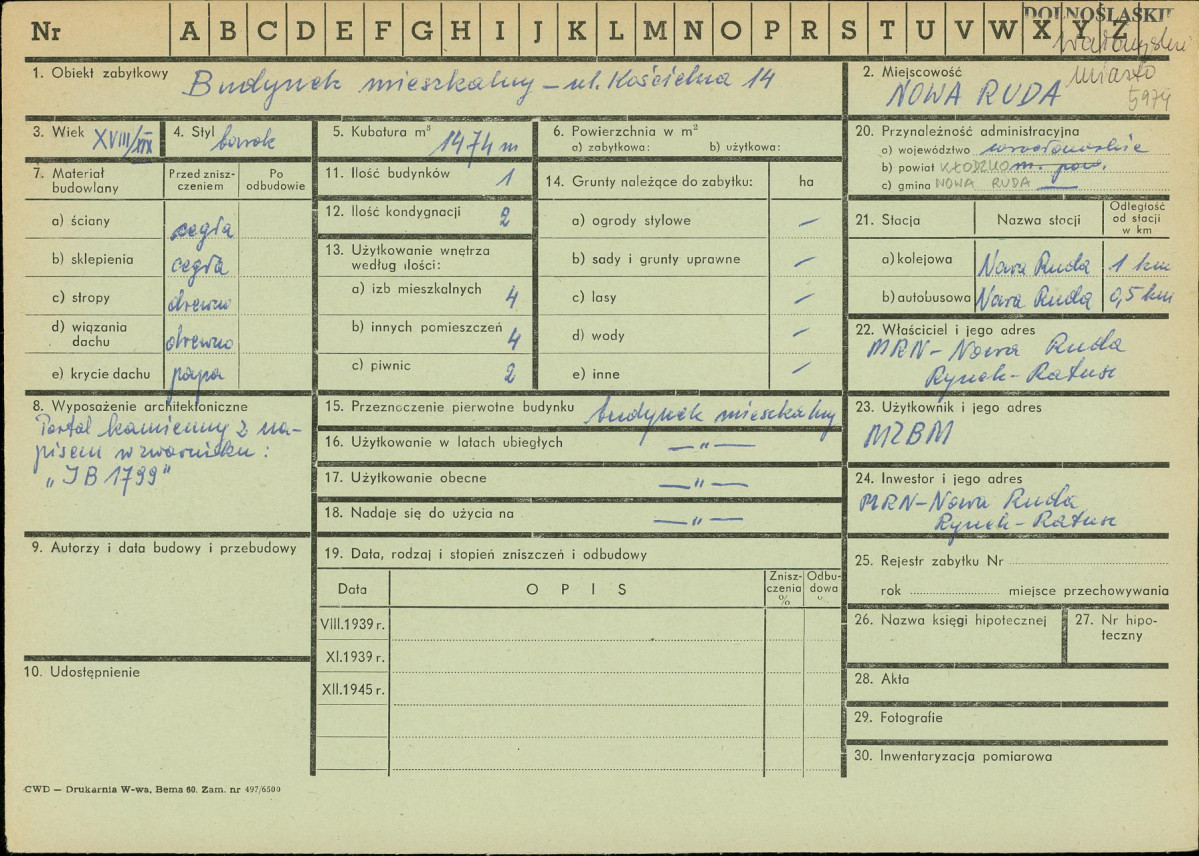 Nr A B C D E F G H I J K L M N O P R S T U V W X Y Z
DOLNOŚLĄSKIE
miasto
5974
1. Obiekt zabytkowy Budynek mieszkalny – ul. Kościelna 14
2. Miejscowość
NOWA RUDA
3. Wiek XVIII/XIX
4. Styl barok
5. Kubatura m³ 1474 m
6. Powierzchnia w m²
a) zabytkowa: b) użytkowa:
7. Materiał budowlany
Przed zniszczeniem
Po odbudowie
a) ściany cegła
b) sklepienia cegła
c) stropy drewno
d) wiązania dachu drewno
e) krycie dachu papa
8. Wyposażenie architektoniczne
Portal kamienny z na-
pisem w zworniku:
„JB 1799"
9. Autorzy i data budowy i przebudowy
10. Udostępnienie
11. Ilość budynków 1
12. Ilość kondygnacji 2
13. Użytkowanie wnętrza
według ilości:
a) izb mieszkalnych 4
b) innych pomieszczeń 4
c) piwnic 2
14. Grunty należące do zabytku: ha
a) ogrody stylowe –
b) sady i grunty uprawne –
c) lasy –
d) wody –
e) inne –
15. Przeznoczenie pierwotne budynku budynek mieszkalny
16. Użytkowanie w latach ubiegłych — „ —
17. Użytkowanie obecne — „ —
18. Nadaje się do użycia na — „ —
19. Data, rodzaj i stopień zniszczeń i odbudowy
Data
OPIS
Zniszczenia %
Odbudowa %
VIII.1939 r.
XI.1939 r.
XII.1945 r.
20. Przynależność administracyjna
a) województwo wrocławskie
b) powiat KŁODZKO m. pow.
c) gmina NOWA RUDA —
21. Stacja
Nazwa stacji
Odległość od stacji w km
a) kolejowa Nowa Ruda 1 km
b) autobusowa Nowa Ruda 0,5 km
22. Właściciel i jego adres
MRN – Nowa Ruda
Rynek – Ratusz
23. Użytkownik i jego adres
MZBM
24. Inwestor i jego adres
MRN – Nowa Ruda
Rynek – Ratusz
25. Rejestr zabytku Nr
rok miejsce przechowywania
26. Nazwa księgi hipotecznej
27. Nr hipo-
teczny
28. Akta
29. Fotografie
30. Inwentaryzacja pomiarowa
CWD — Drukarnia W-wa, Bema 60. Zam. nr 497/6500